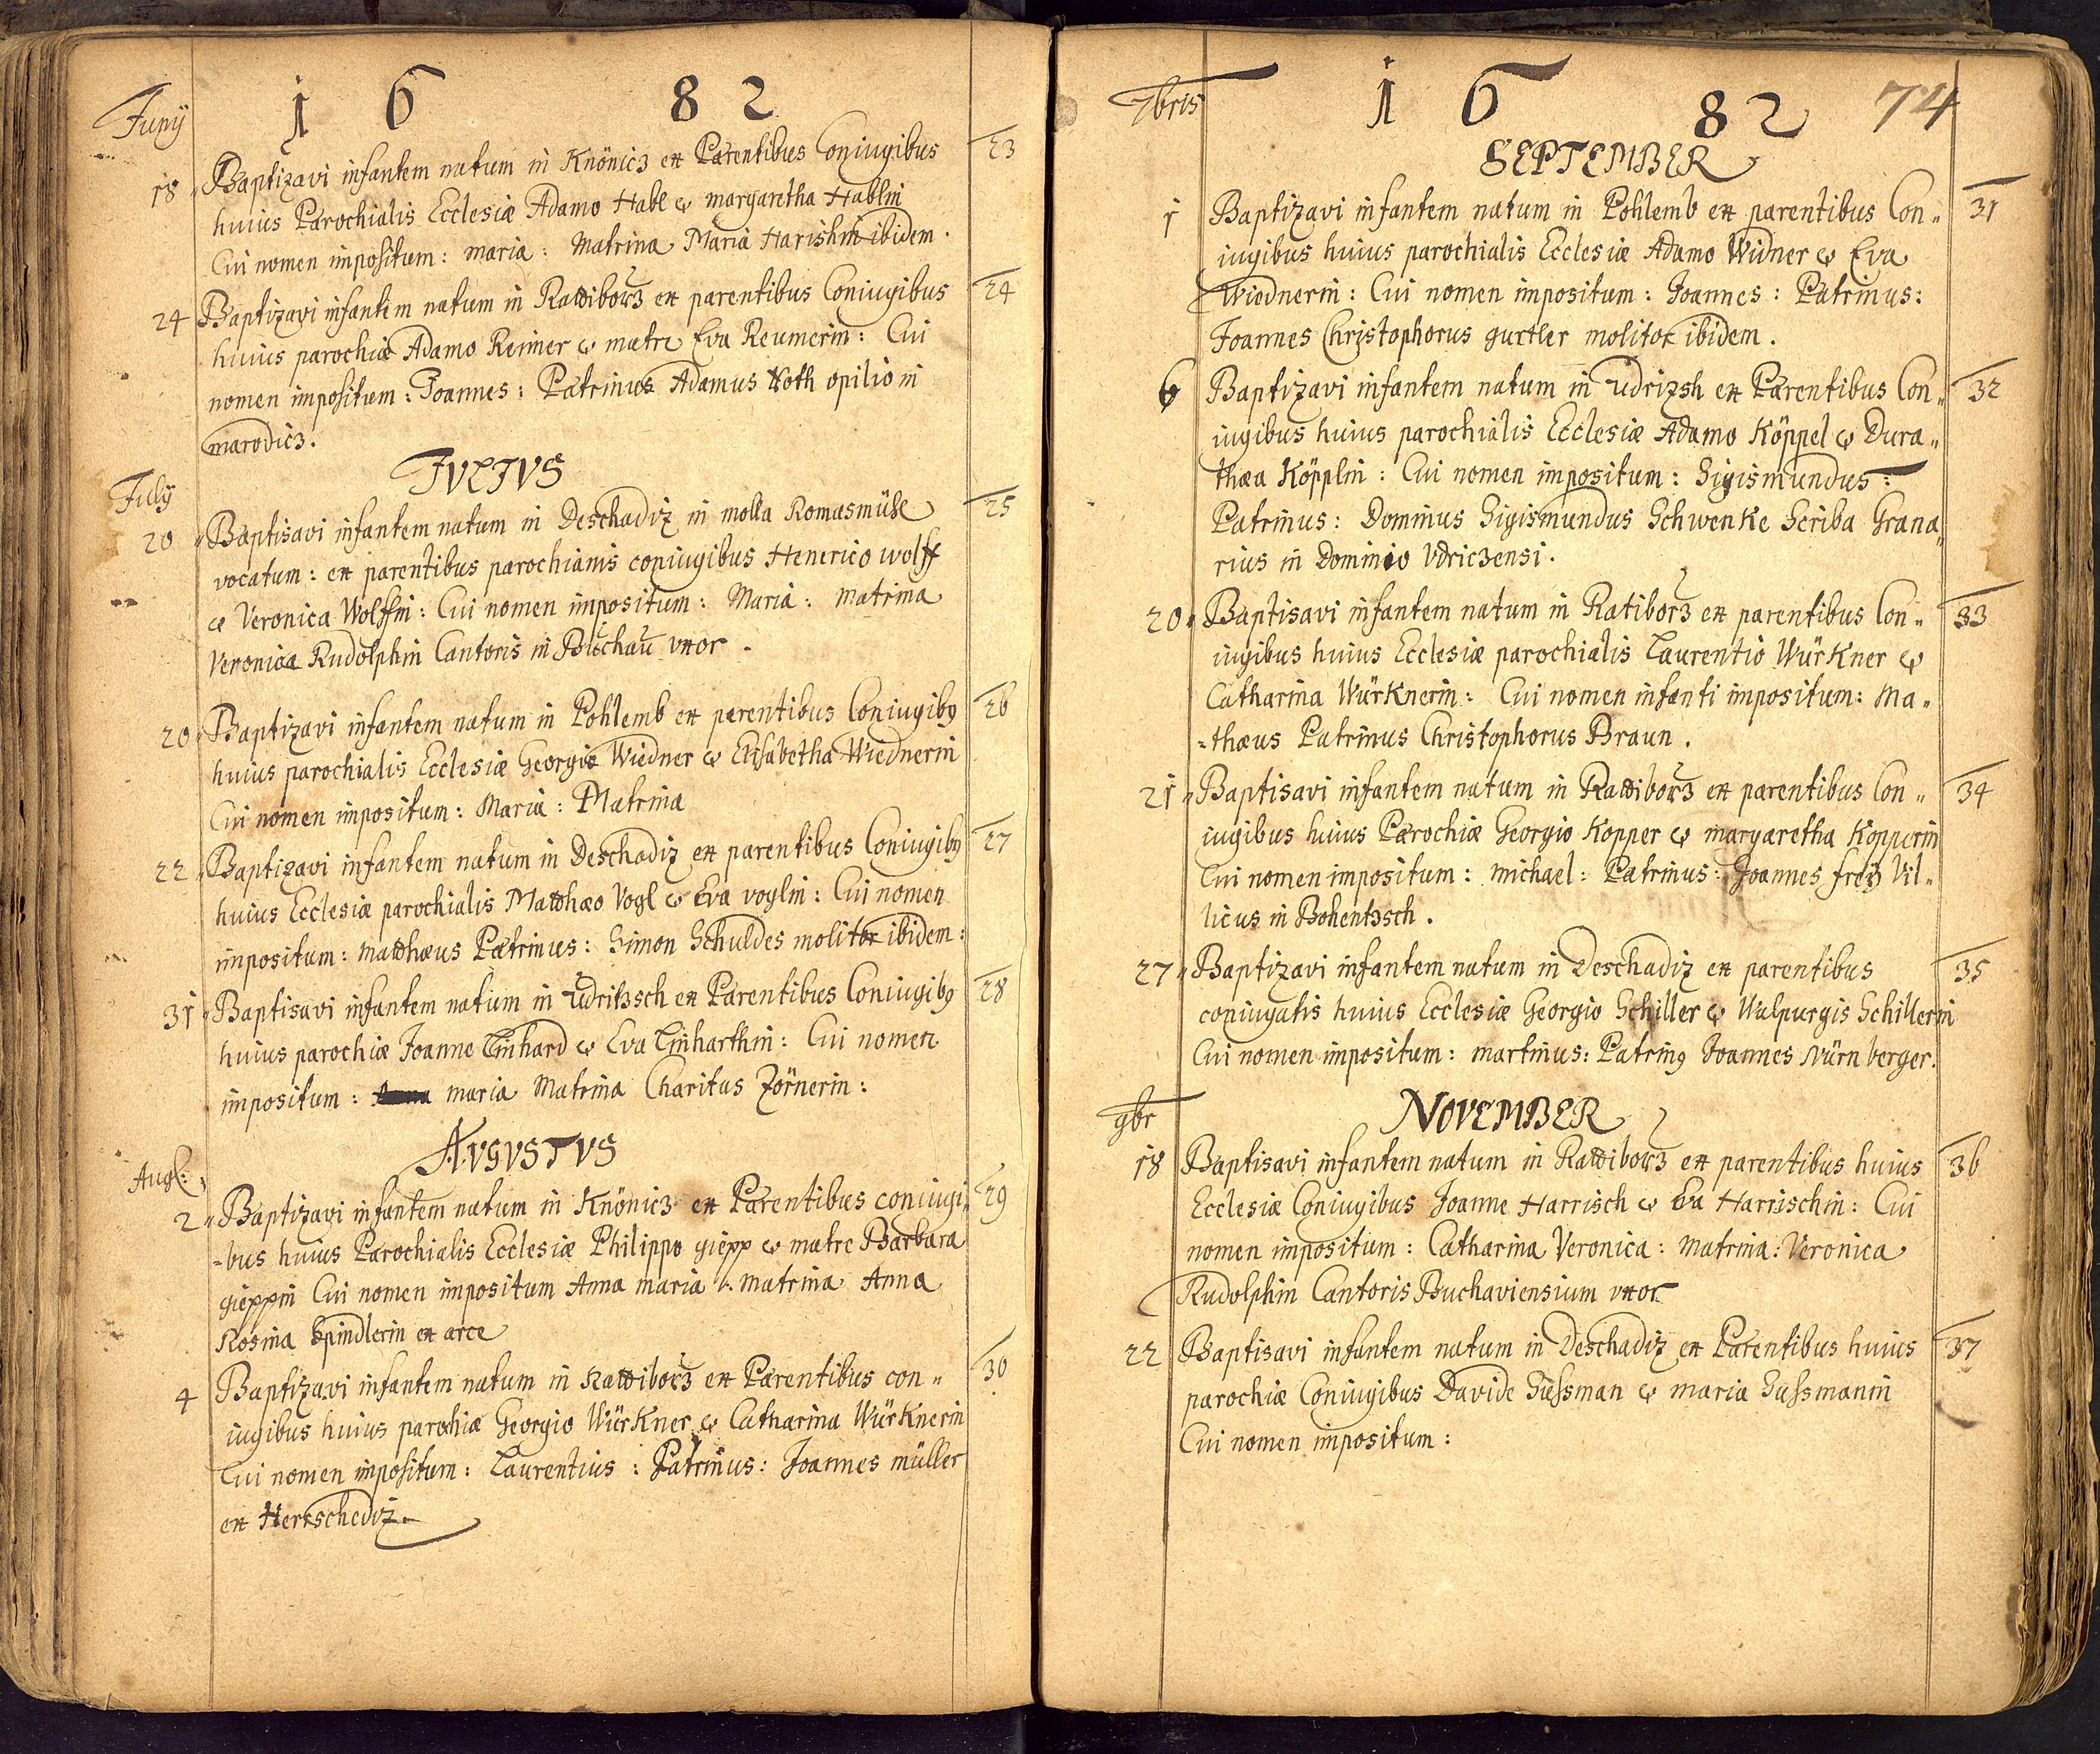 Junÿ 1 6 8 2
18 " Baptizavi infantem natum in Knönicz ex Parentibus Coniugibus 23
huius Parochialis Ecclesiæ Adamo Habl & margaretha Hablin
Cui nomen impositum: maria: Matrina Maria Harishin ibidem.
24 Baptizavi infantem natum in Rattiborz ex parentibus Coniugibus 24
huius parochiæ Adamo Reimer & matre Eva Reumerin: Cui
nomen impositum: Joannes: Patrinus Adamus Noth opilio in
marodicz.
JVLIVS
July
20 " Baptisavi infantem natum in Deschadiz in molla Romasmühl 25
vocatum: ex parentibus parochianis coniugibus Henerico wolff
& Veronica Wolffin: Cui nomen impositum: Maria: matrina
Veronica Rudolphin Cantoris in Buchau uxor.
20 " Baptizavi infantem natum in Pohlemb ex parentibus Coniugibꝰ 26
huius parochialis Ecclesiæ Georgio Wiedner & Elisabetha Wiednerin
Cui nomen impositum: Maria: Matrina
22 " Baptizavi infantem natum in Deschadiz ex parentibus Coniugibꝰ 27
huius Ecclesiæ parochialis Matthæo Vogl & Eva voglin: Cui nomen
impositum: matthæus Patrinus: Simon Schuldes molitor ibidem:
31 " Baptisavi infantem natum in Udritzsch ex Parentibus Coniugibꝰ 28
huius parochiæ Joanne Linhard & Eva Linharthin: Cui nomen
impositum: Anna maria Matrina Charitas Zörnerin:
AVGVSTVS
Augl:
2 " Baptizavi infantem natum in Knönicz ex Parentibus coniugi" 29
-bus huius Parochialis Ecclesiæ Philippo giepp & matre Barbara
gieppin Cui nomen impositum Anna maria :. matrina Anna
Rosina Spindlerin ex arce
4 Baptizavi infantem natum in Rattiborz ex Parentibus con" 30
iugibus huius parohiæ Georgio WürKner & Catharina WürKnerin
Cui nomen impositum: Laurentius: Patrinus: Joannes müller
ex Herrschediz.
7bris 1 6 8 2 74
SEPTEMBER
1 Baptizavi infantem natum in Pohlemb ex parentibus Con" 31
iugibus huius parochialis Ecclesiæ Adamo Widner & Eva
Wiednerin: Cui nomen impositum: Joannes: Patrinus:
Joannes Christophorus gurtler molitor ibidem.
6 Baptizavi infantem natum in Udrizsh ex Parentibus Con" 32
iugibus huius parochialis Ecclesiæ Adamo Köppel & Dura"
thæa Köpplin: Cui nomen impositum: Sigismundus:
Patrinus: Dominus Sigismundus Schwenke Scriba Grana"
rius in Dominio Vdriczensi.
20 " Baptisavi infantem natum in Ratiborz ex parentibus Con" 33
iugibus huius Ecclesiæ parochialis Laurentio WürKner &
Catharina WürKnerin: Cui nomen infanti impositum: Ma"
=thæus Patrinus Christophorus Braun.
21 " Baptisavi infantem natum in Rattiborz ex parentibus Con" 34
iugibus huius Parochiæ Georgio Kopper & margaretha Kopperin
Cui nomen impositum: michael: Patrinus: Joannes freÿ Vil"
licus in Bohentzsch.
27 " Baptizavi infantem natum in Deschadiz ex parentibus 35
coniugatis huius Ecclesiæ Georgio Schiller & Walpurgis Schillerin
Cui nomen impositum: martinus: Patrinꝰ Joannes Nürnberger.
9br NOVEMBER
18 Baptisavi infantem natum in Rattiborz ex parentibus huius 36
Ecclesiæ Coniugibus Joanne Harrisch & Eva Harrischin: Cui
nomen impositum: Catharina Veronica: matrina: Veronica
Rudolphin Cantoris Buchaviensium uxor
22 Baptisavi infantem natum in Deschadiz ex Parentibus huius 37
parochiæ Coniugibus Davide Süssman & maria Sussmanin
Cui nomen impositum: